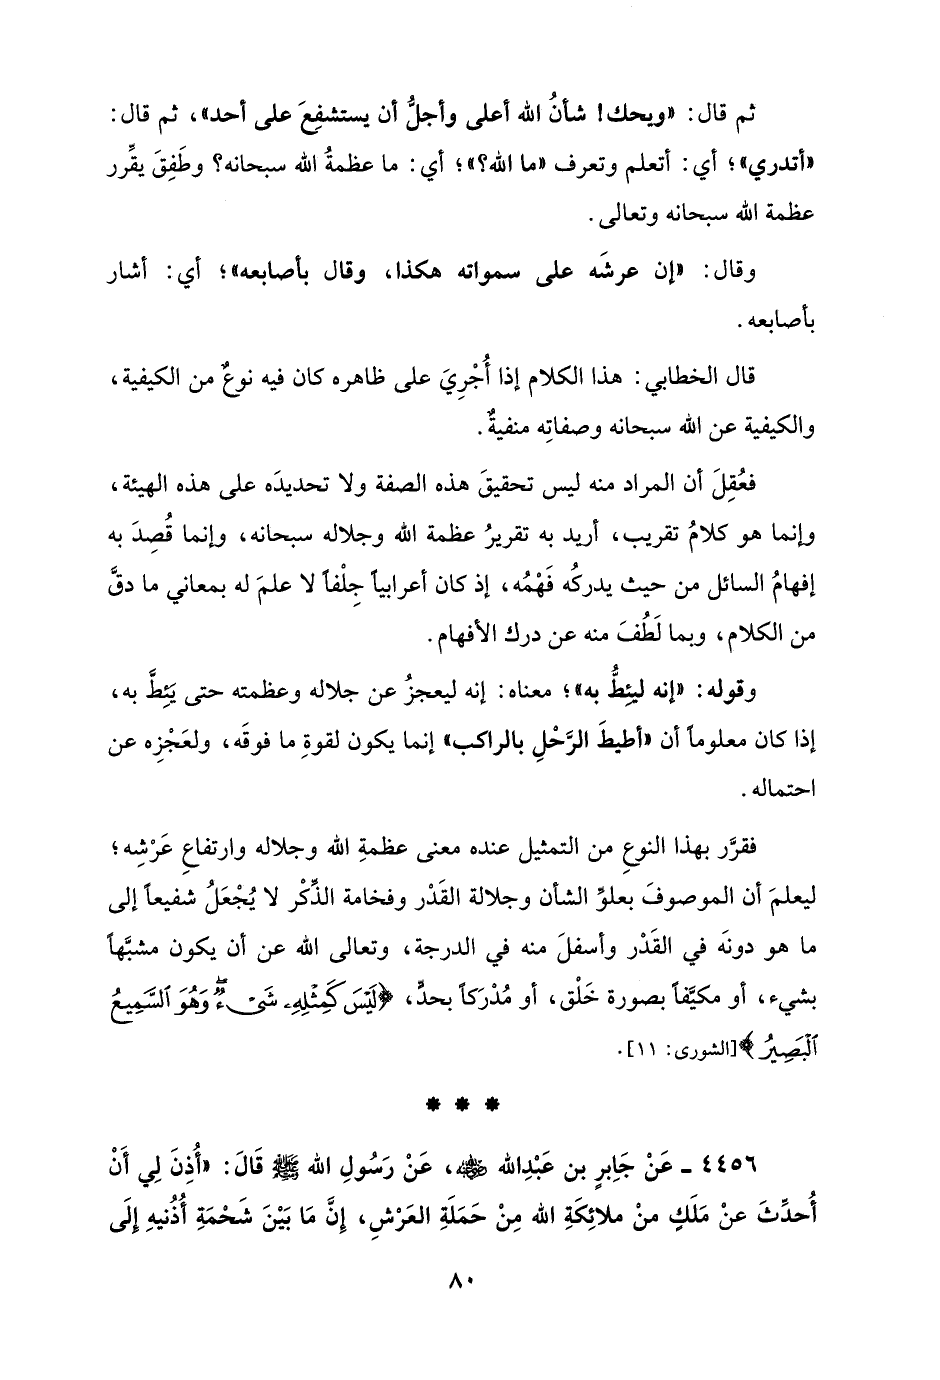 ثم قال: «ويحك! شأنُ الله أعلى وأجلُّ أن يستشفِعَ على أحد»، ثم قال:
«أتدري»؛ أي: أتعلم وتعرف «ما الله؟»؛ أي: ما عظمةُ الله سبحانه؟ وطَفِقَ يقرِّر
عظمة الله سبحانه وتعالى.
وقال: «إن عرشَه على سمواته هكذا، وقال بأصابعه»؛ أي: أشار
بأصابعه.
قال الخطابي: هذا الكلام إذا أُجْرِيَ على ظاهره كان فيه نوعٌ من الكيفية،
والكيفية عن الله سبحانه وصفاتِه منفيةٌ.
فعُقِلَ أن المراد منه ليس تحقيقَ هذه الصفة ولا تحديدَه على هذه الهيئة،
وإنما هو كلامُ تقريب، أريد به تقريرُ عظمة الله وجلاله سبحانه، وإنما قُصِدَ به
إفهامُ السائل من حيث يدركُه فَهْمُه، إذ كان أعرابياً جِلْفاً لا علمَ له بمعاني ما دقَّ
من الكلام، وبما لَطُفَ منه عن درك الأفهام.
وقوله: «إنه ليئِطُّ به»؛ معناه: إنه ليعجزُ عن جلاله وعظمته حتى يَئِطَّ به،
إذا كان معلوماً أن «أطيطَ الرَّحْلِ بالراكب» إنما يكون لقوةِ ما فوقَه، ولعَجْزِه عن
احتماله.
فقرَّر بهذا النوعِ من التمثيل عنده معنى عظمةِ الله وجلاله وارتفاعِ عَرْشِه؛
ليعلمَ أن الموصوفَ بعلوِّ الشأن وجلالة القَدْر وفخامة الذِّكْر لا يُجْعَلُ شفيعاً إلى
ما هو دونَه في القَدْر وأسفلَ منه في الدرجة، وتعالى الله عن أن يكون مشبَّهاً
بشيء، أو مكيَّفاً بصورة خَلْق، أو مُدْرَكاً بحدٍّ، ﴿لَيْسَ كَمِثْلِهِۦ شَىْءٌۖ وَهُوَ ٱلسَّمِيعُ
ٱلْبَصِيرُ﴾[الشورى: ١١].
* * *
٤٤٥٦ ـ عَنْ جَابِرِ بن عَبْدِالله ﷺ، عَنْ رَسُولِ الله ﷺ قَالَ: «أُذِنَ لِي أَنْ
أُحدِّثَ عنْ مَلَكٍ منْ ملائِكَةِ الله مِنْ حَمَلَةِ العَرْشِ، إِنَّ مَا بَيْنَ شَحْمَةِ أُذُنيهِ إِلَى
٨٠